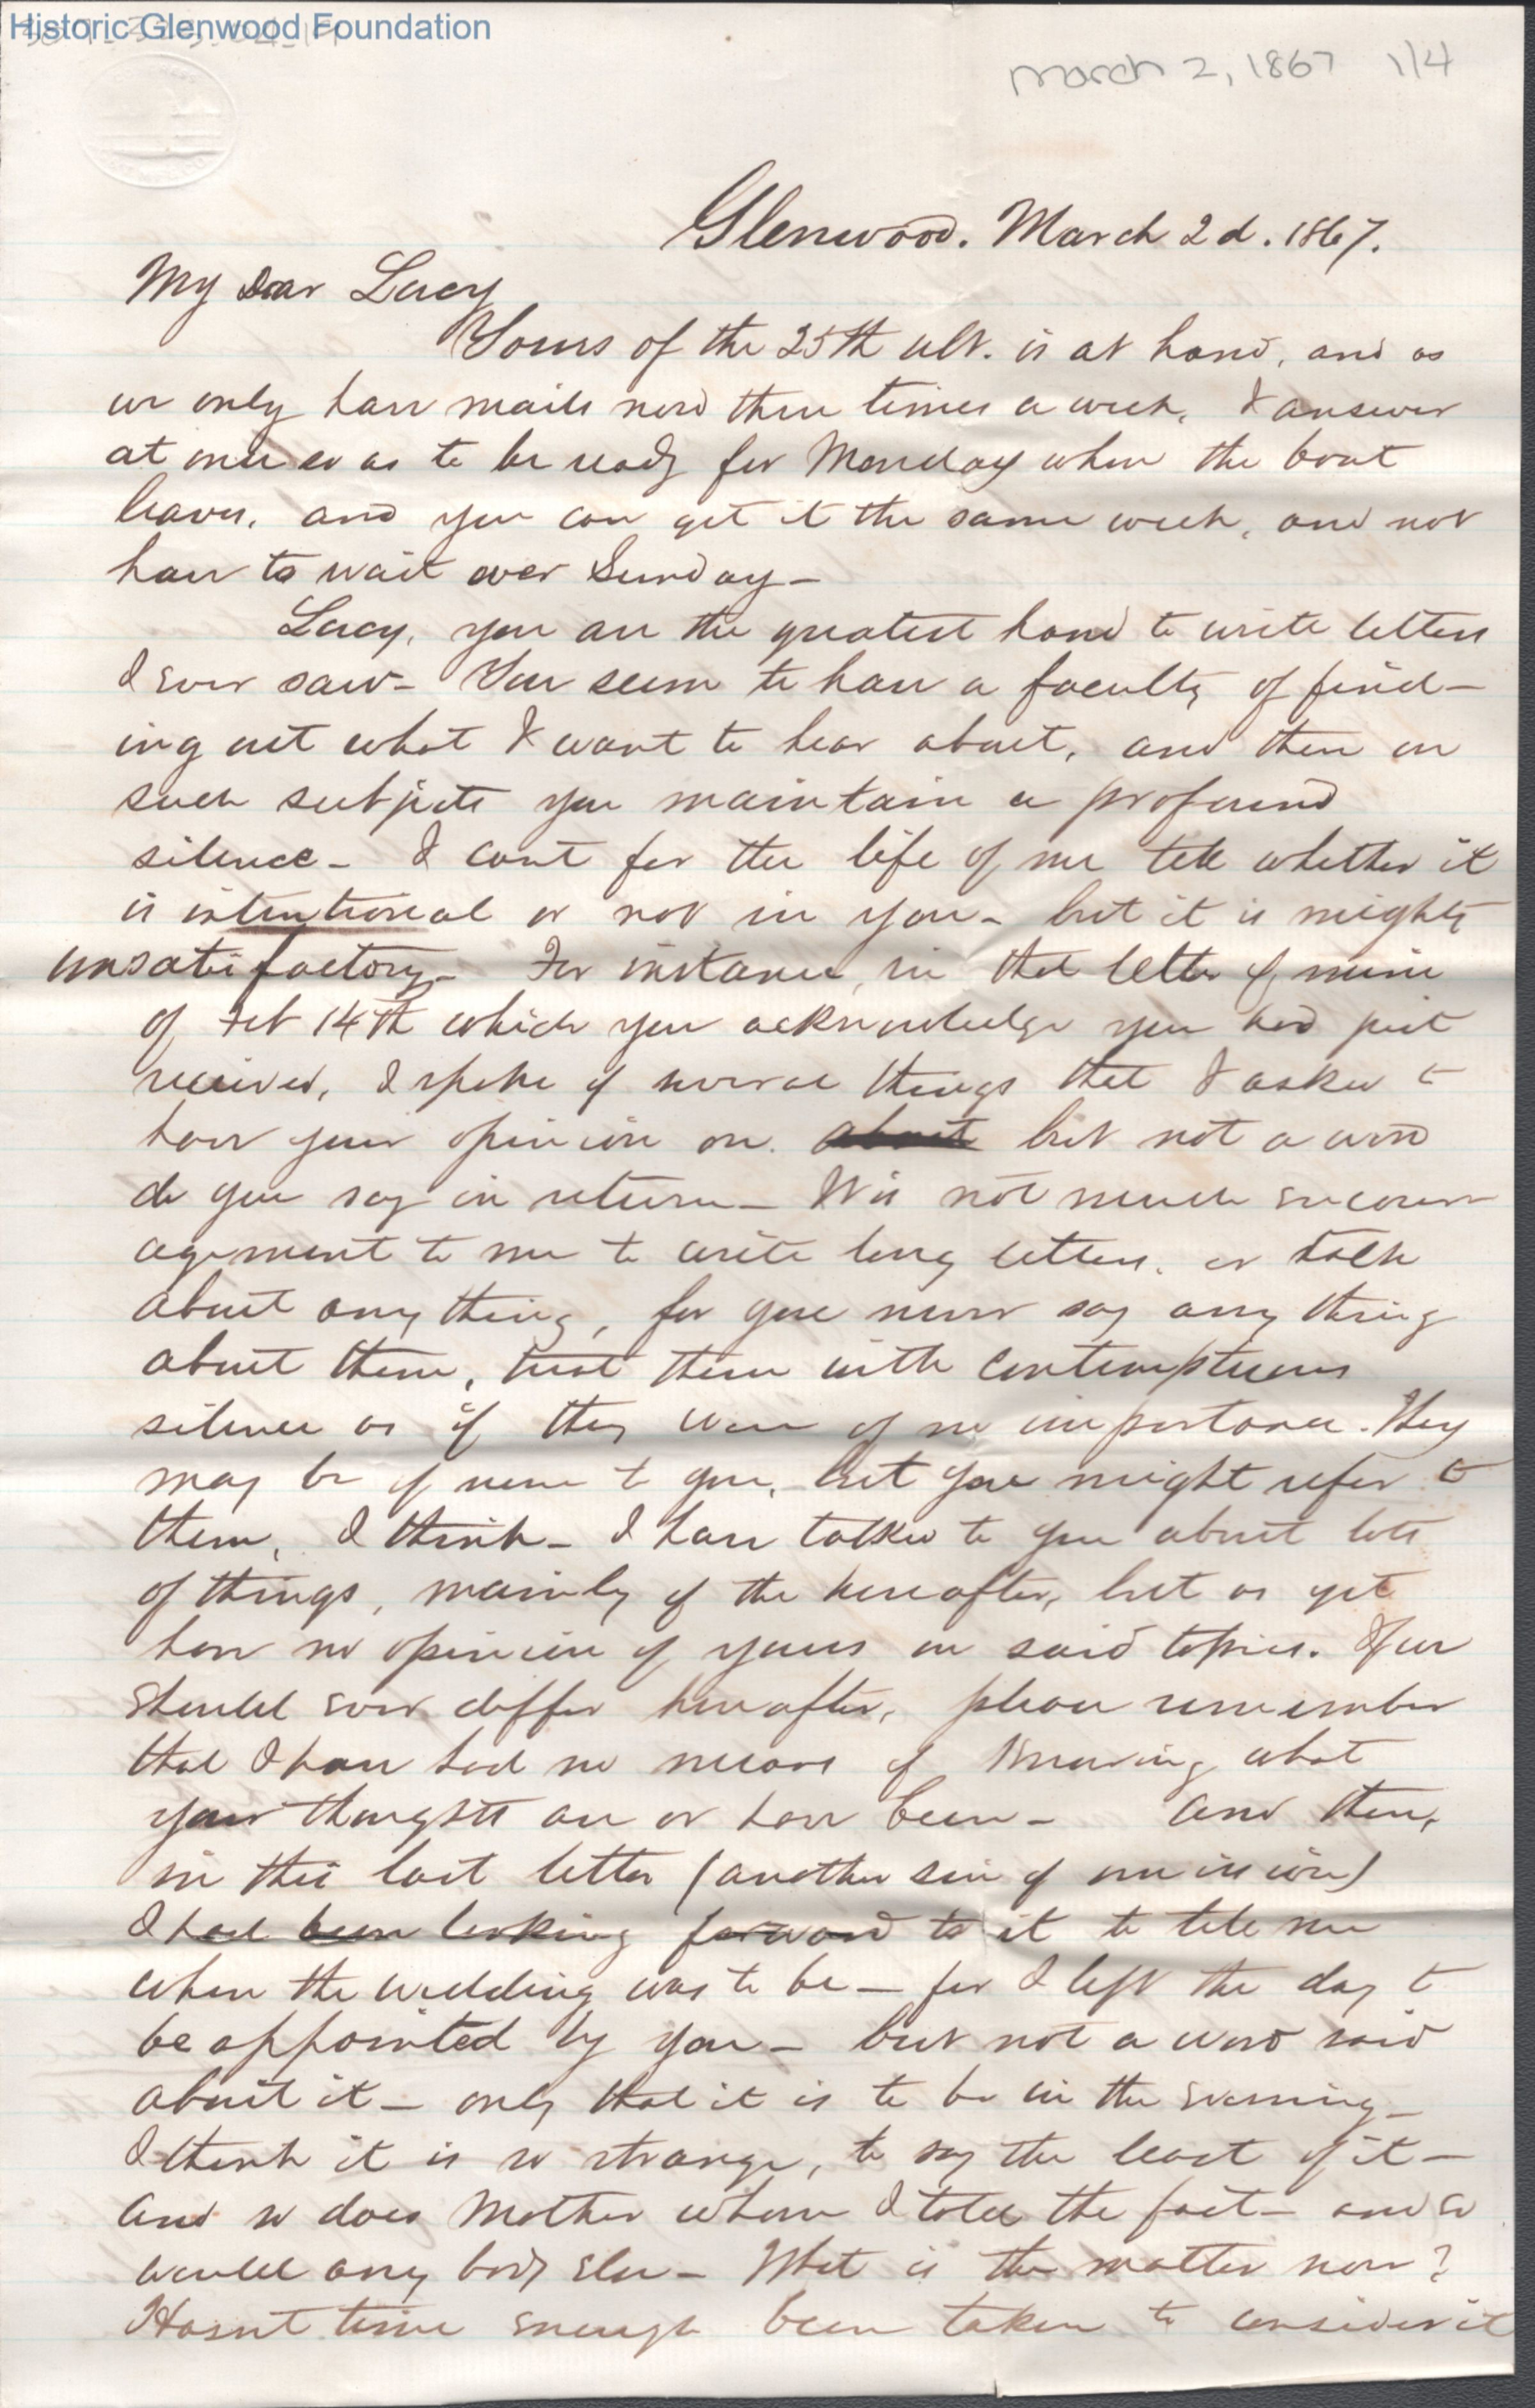 Historic Glenwood Foundation
March 2, 1867 1/4
Glenwood. March 2d. 1867.
My Dear Lucy
Yours of the 25th ult. is at hand, and as
we only have mails now three times a week, I answer
at once so as to be ready for Monday when the boat
leaves, and you can get it the same week, and not
have to wait over Sunday—
Lucy, you are the greatest hand to write letters
I ever saw— You seem to have a faculty of find-
ing out what I want to hear about, and then on
such subjects you maintain a profound
silence— I cant for the life of me tell whether it
is intentional or not in you— but it is mighty
unsatisfactory— For instance, in that letter of mine
of Feb 14th which you acknowledge you had just
received, I spoke of several things that I asked to
have your opinion on. about but not a word
do you say in return— It is not much encour-
agement to me to write long letters, or talk
about any thing, for you never say any thing
about them, treat them with contemptuous
silence as if they were of no importance. They
may be of none to you, but you might refer to
them, I think— I have talked to you about lots
of things, mainly of the hereafter, but as yet
have no opinion of yours on said topics. If we
should ever differ hereafter, please remember
that I have had no means of knowing what
your thoughts are or have been— And then,
in this last letter (another sin of omission)
I had been looking forward to it to tell me
when the wedding was to be— for I left the day to
be appointed by you— but not a word said
about it— only that it is to be in the evening—
I think it is so strange, to say the least of it—
And so does Mother whom I told the fact— and so
would any body else— What is the matter now?
Hasnt time enough been taken to consider it